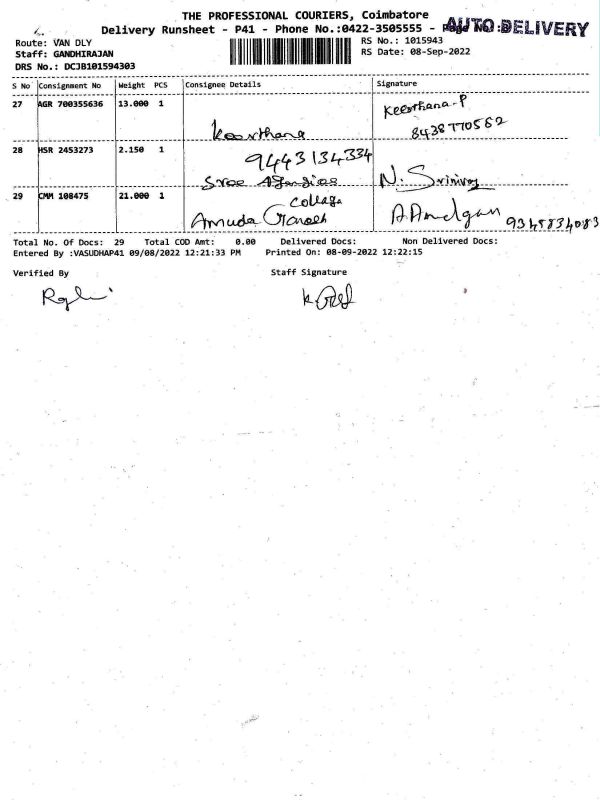 THE PROFESSIONAL COURIERS, Coimbatore
Delivery Runsheet - P41 - Phone No.:0422-3505555 - Page No :3
AUTO DELIVERY
Route: VAN DLY
Staff: GANDHIRAJAN
DRS No.: DCJB101594303
RS No.: 1015943
RS Date: 08-Sep-2022
S No Consignment No Weight PCS Consignee Details Signature
27 AGR 700355636 13.000 1 Keerthana Keerthana-P
8438770562
28 HSR 2453273 2.150 1 9443134334
Sree N. Srinivas
29 CMM 108475 21.000 1 College
Amuda 9345834083
Total No. Of Docs: 29 Total COD Amt: 0.00 Delivered Docs: Non Delivered Docs:
Entered By :VASUDHAP41 09/08/2022 12:21:33 PM Printed On: 08-09-2022 12:22:15
Verified By Staff Signature